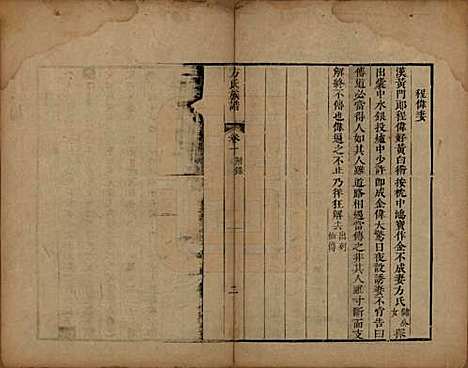 程偉妻
漢黃門郎程偉好黃白術按枕中鴻寶作金不成妻方氏儲公女探
出囊中水銀投爐中少許即成金偉大驚日夜誘妻不肯告曰
傳道必當得人如其人雖道路相遇當傳之非其人雖寸斷而支
解終不傳也偉逼之不止乃徉狂解去出列仙傳
方氏族譜
卷一
附錄
二